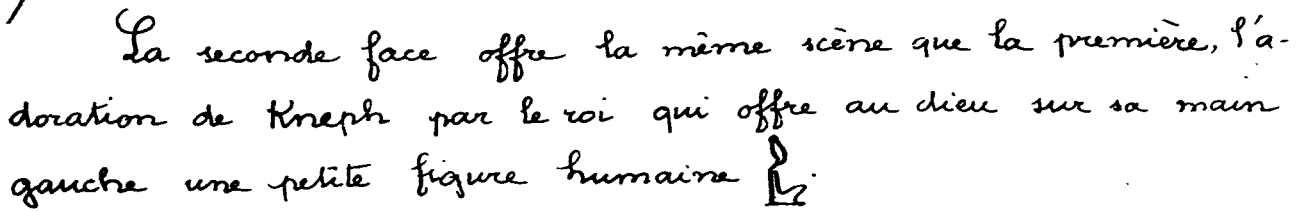 La seconde face offre la même scène que la première, l'a-
doration de Kneph par le roi qui offre au dieu sur sa main
gauche une petite figure humaine .